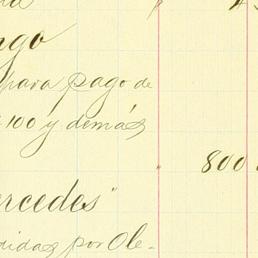 ngo
para pago de
100 y demás
800
rcedes"
didas por Ole-